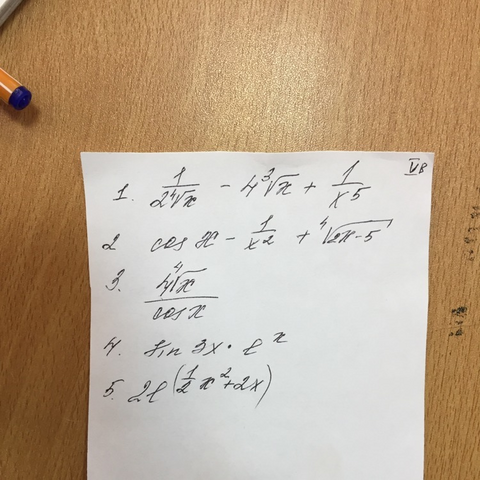 V8
1. 1/(2⁴√x) - 4³√x + 1/x⁵
2 cos x - 1/x² + ⁴√(2x-5)
3. 4⁴√x / cos x
4. sin 3x · e^x
5. 2e^(1/2 x² + 2x)